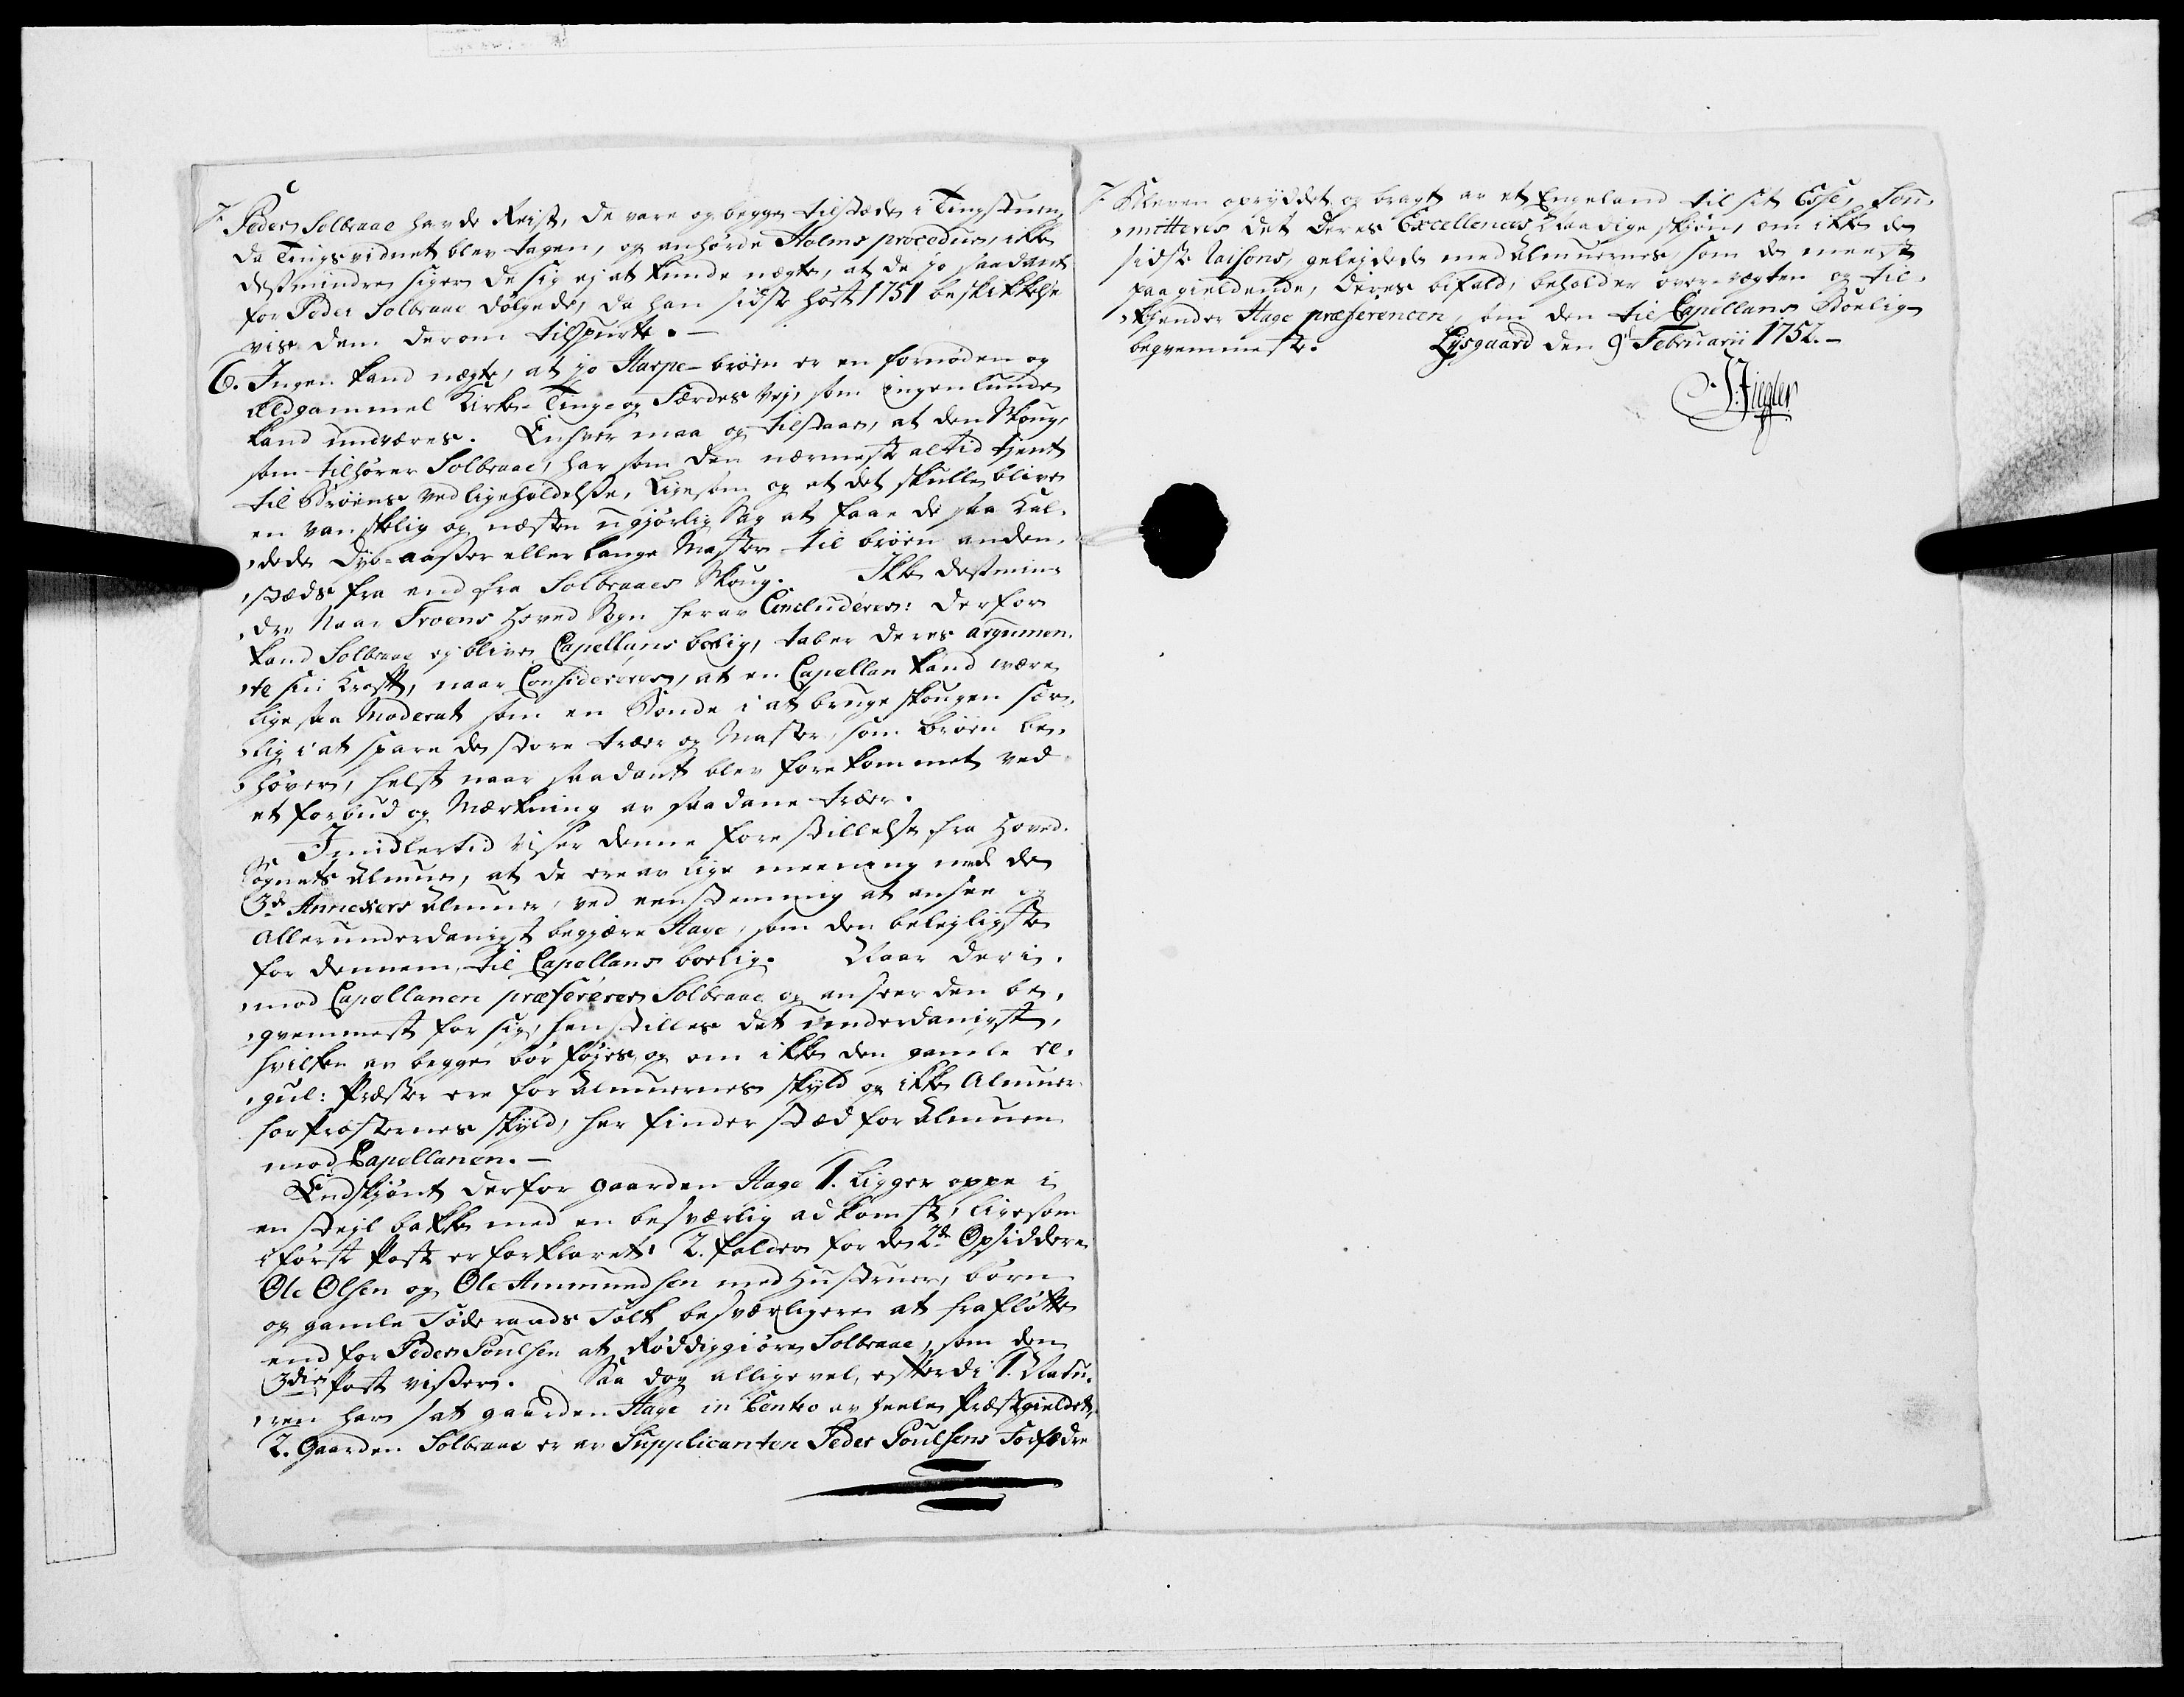 Peder Solbraae havde Reist, de vare og begge tilstæde i Tingstuen,
da Tingsvidnet blev tagen, og anhørde Holms procedur, ikke
destmindre siger de sig ej at kunde nægte, at de jo saadant
for Peder Solbraae dølgede, da han sidste høst 1751 beskikkelse
viis dem derom tilspurte. —
6. Ingen kand nægte, at jo Harpe-broen er en fornøden og
ældgammel Kirke- Tinge- og Færdes Vej, som ingenlunde
kand undværes. Enhver maa og tilstaae, at den Skoug,
som tilhører Solbraae, har som den nærmeste altid tjent
til Broens vedligeholdelse, Ligesom og at det skulle blive
en vanskelig og næsten ugjørlig Sag at faae de saa Kal-
dede Dyb-aasser eller lange Master til broen anden-
stæds fra end fra Solbraaes Skoug. Ikke destmin-
dre Naar Froens Hoved Sogn herav Concluderer: derfor
kand Solbraae ej blive Capellans bolig, taber deres argumen-
te sin Kraft, naar Considereres, at en Capellan kand være
ligesaa Moderat som en Bonde i at bruge skougen sær-
lig i at spare de store træer og Master, som broen be-
høver, helst naar saadant blev forekommet ved
et forbud og Mærkning av saadane træer.
Imidlertid viser denne forestillelse fra Hoved-
Sognets Almue, at de ere av lige meening med de
3de Annexers Almuer, ved eenstemmig at ansee og
allerunderdanigst begjære Hage, som den belejligste
for dennem, til Capellans boelig. Naar deri-
mod Capellanen præfererer Solbraae og anseer den be-
qvemmest for sig, henstilles det underdanigst,
hvilken av begge bør føyes, og om ikke den gamle re-
gul: Præster ere for Almuernes skyld og ikke Almuer
for præsternes skyld, her finder stæd for Almuen
mod Capellanen. —
Endskjønt derfor gaarden Hage 1. Ligger oppe i
en stejl bakke med en besværlig adkomst, ligesom
i første Post er forklaret: 2. falder for de 2de Opsiddere
Ole Olsen og Ole Ammundsen med Hustruer, børn
og gamle Føderaads Folk besværligere at fraflotte
end for Peder Poulsen at Røddiggiøre Solbraae, som den
3die Post visser. Saa dog alligevel, efterdi 1. Natu-
ren har sat gaarden Hage in Centro av heele Præstgieldet,
2. Gaarden Solbraae er av Supplicanten Peder Poulsens Forfædre
Kleven opryddet og bragt av et Engeland til sit Esse, Sou-
mitteres det Deres Excellences Naadige skjøn, om ikke de
sidste raisons, geleidede med Almuernes, som de meest
paagieldende, Deres bifald, beholder overvægten og til-
skjender Hage præferencen, om den til Capellans Boelig
beqvemmeste. Lysgaard den 9d Februarii 1752. —
Ziegler